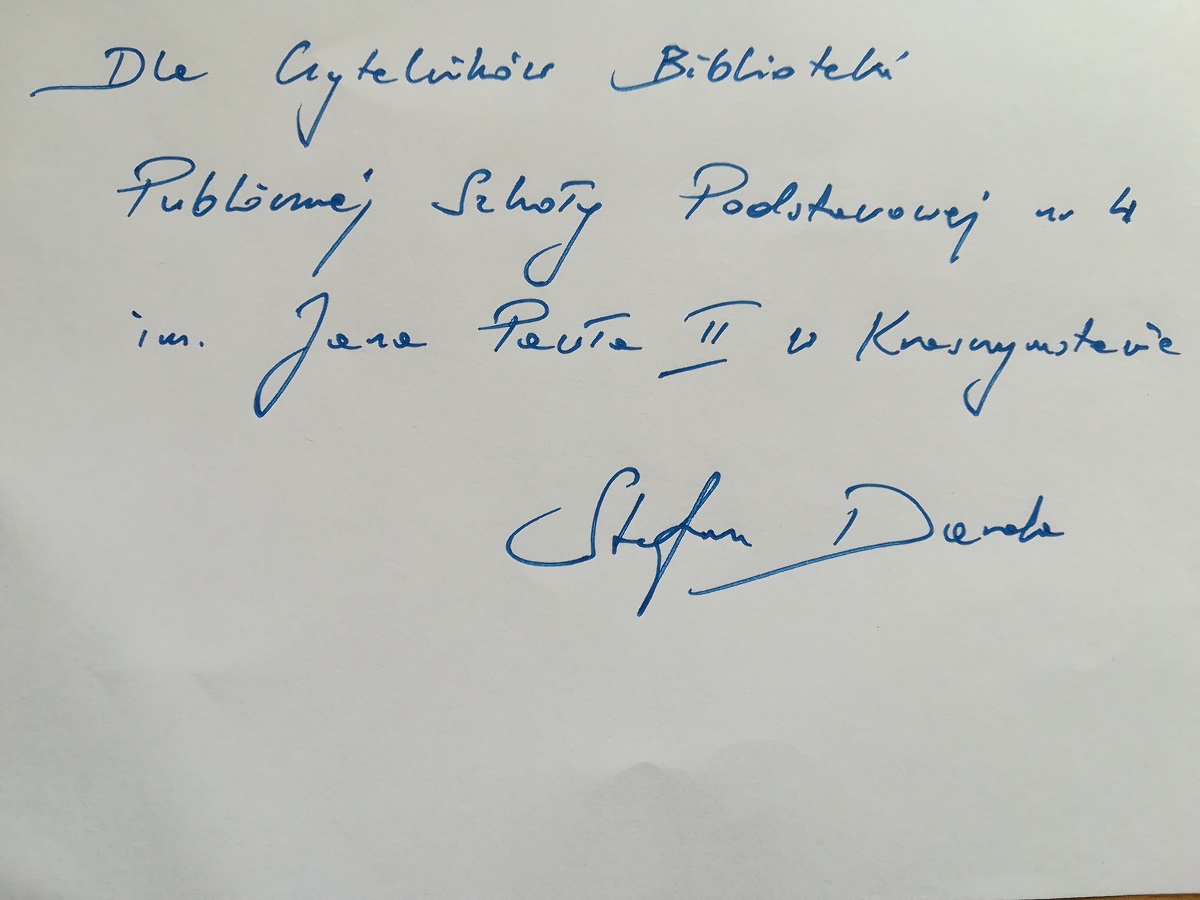 Dla Czytelników Biblioteki
Publicznej Szkoły Podstawowej nr 4
im. Jana Pawła II w Krasnymstawie
Stefan Darda